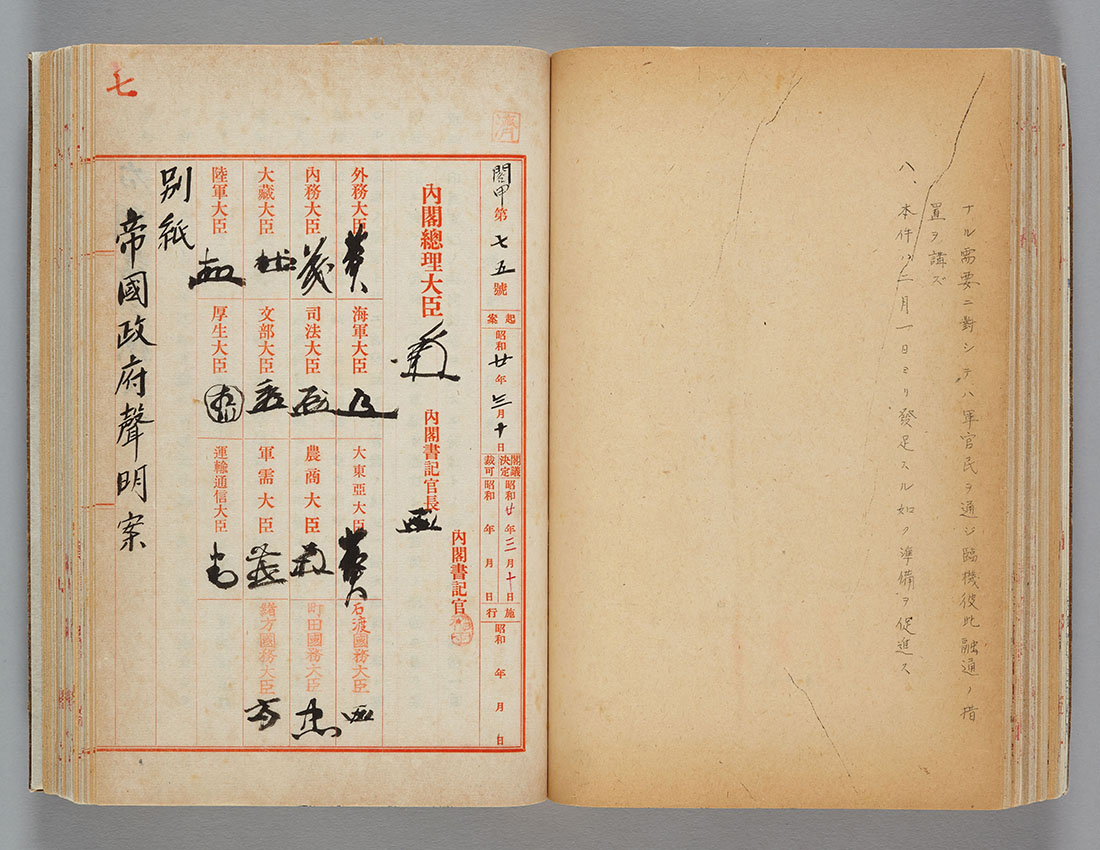 ナル需要ニ對シテハ軍官民ヲ通ジ臨機彼此融通ノ措
置ヲ講ズ
八、本件ハ二月一日ヨリ發足スル如ク準備ヲ促進ス
七
閣甲第七五號
起案
昭和廿年三月十日
閣議決定
昭和廿年三月十日
裁可
昭和 年 月 日
施行
昭和 年 月 日
內閣書記官
內閣書記官長
內閣總理大臣
外務大臣
海軍大臣
大東亞大臣
石渡國務大臣
內務大臣
司法大臣
農商大臣
町田國務大臣
大藏大臣
文部大臣
軍需大臣
緖方國務大臣
陸軍大臣
厚生大臣
運輸通信大臣
別紙
帝國政府聲明案